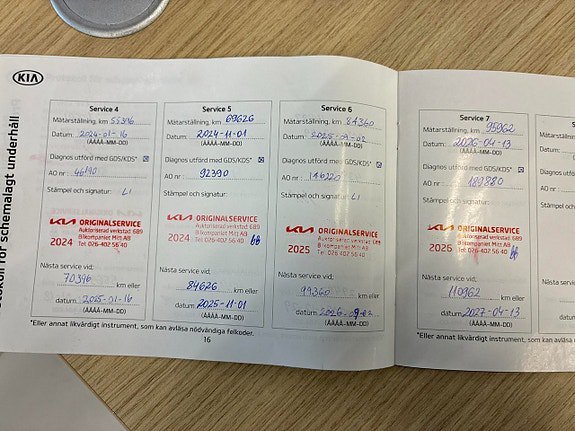 KIA
Protokoll för schemalagt underhåll
Service 4
Mätarställning, km 55396
Datum: 2024-01-16
(ÅÅÅÅ-MM-DD)
Diagnos utförd med GDS/KDS* ☒
AO nr: 46190
Stämpel och signatur: LI
KIA ORIGINALSERVICE
Auktoriserad verkstad 689
Bilkompaniet Mitt AB
2024 Tel: 026-402 56 40
Nästa service vid:
70396 km eller
datum 2025-01-16
(ÅÅÅÅ-MM-DD)
Service 5
Mätarställning, km 69626
Datum: 2024-11-01
(ÅÅÅÅ-MM-DD)
Diagnos utförd med GDS/KDS* ☒
AO nr: 92390
Stämpel och signatur:
KIA ORIGINALSERVICE
Auktoriserad verkstad 689
Bilkompaniet Mitt AB
2024 Tel: 026-402 56 40
Nästa service vid:
84626 km eller
datum 2025-11-01
(ÅÅÅÅ-MM-DD)
Service 6
Mätarställning, km 84340
Datum:
(ÅÅÅÅ-MM-DD)
Diagnos utförd med GDS/KDS* ☒
AO nr: 146220
Stämpel och signatur: LI
KIA ORIGINALSERVICE
Auktoriserad verkstad 689
Bilkompaniet Mitt AB
2025 Tel: 026-402 56 40
Nästa service vid:
99340 km eller
datum
(ÅÅÅÅ-MM-DD)
*Eller annat likvärdigt instrument, som kan avläsa nödvändiga felkoder.
16
Service 7
Mätarställning, km 95962
Datum: 2026-04-13
(ÅÅÅÅ-MM-DD)
Diagnos utförd med GDS/KDS* ☒
AO nr: 189880
Stämpel och signatur:
KIA ORIGINALSERVICE
Auktoriserad verkstad 689
Bilkompaniet Mitt AB
2026 Tel: 026-402 56 40
Nästa service vid:
110962 km eller
datum 2027-04-13
(ÅÅÅÅ-MM-DD)
*Eller annat likvärdigt instrument, som kan avläsa nöd